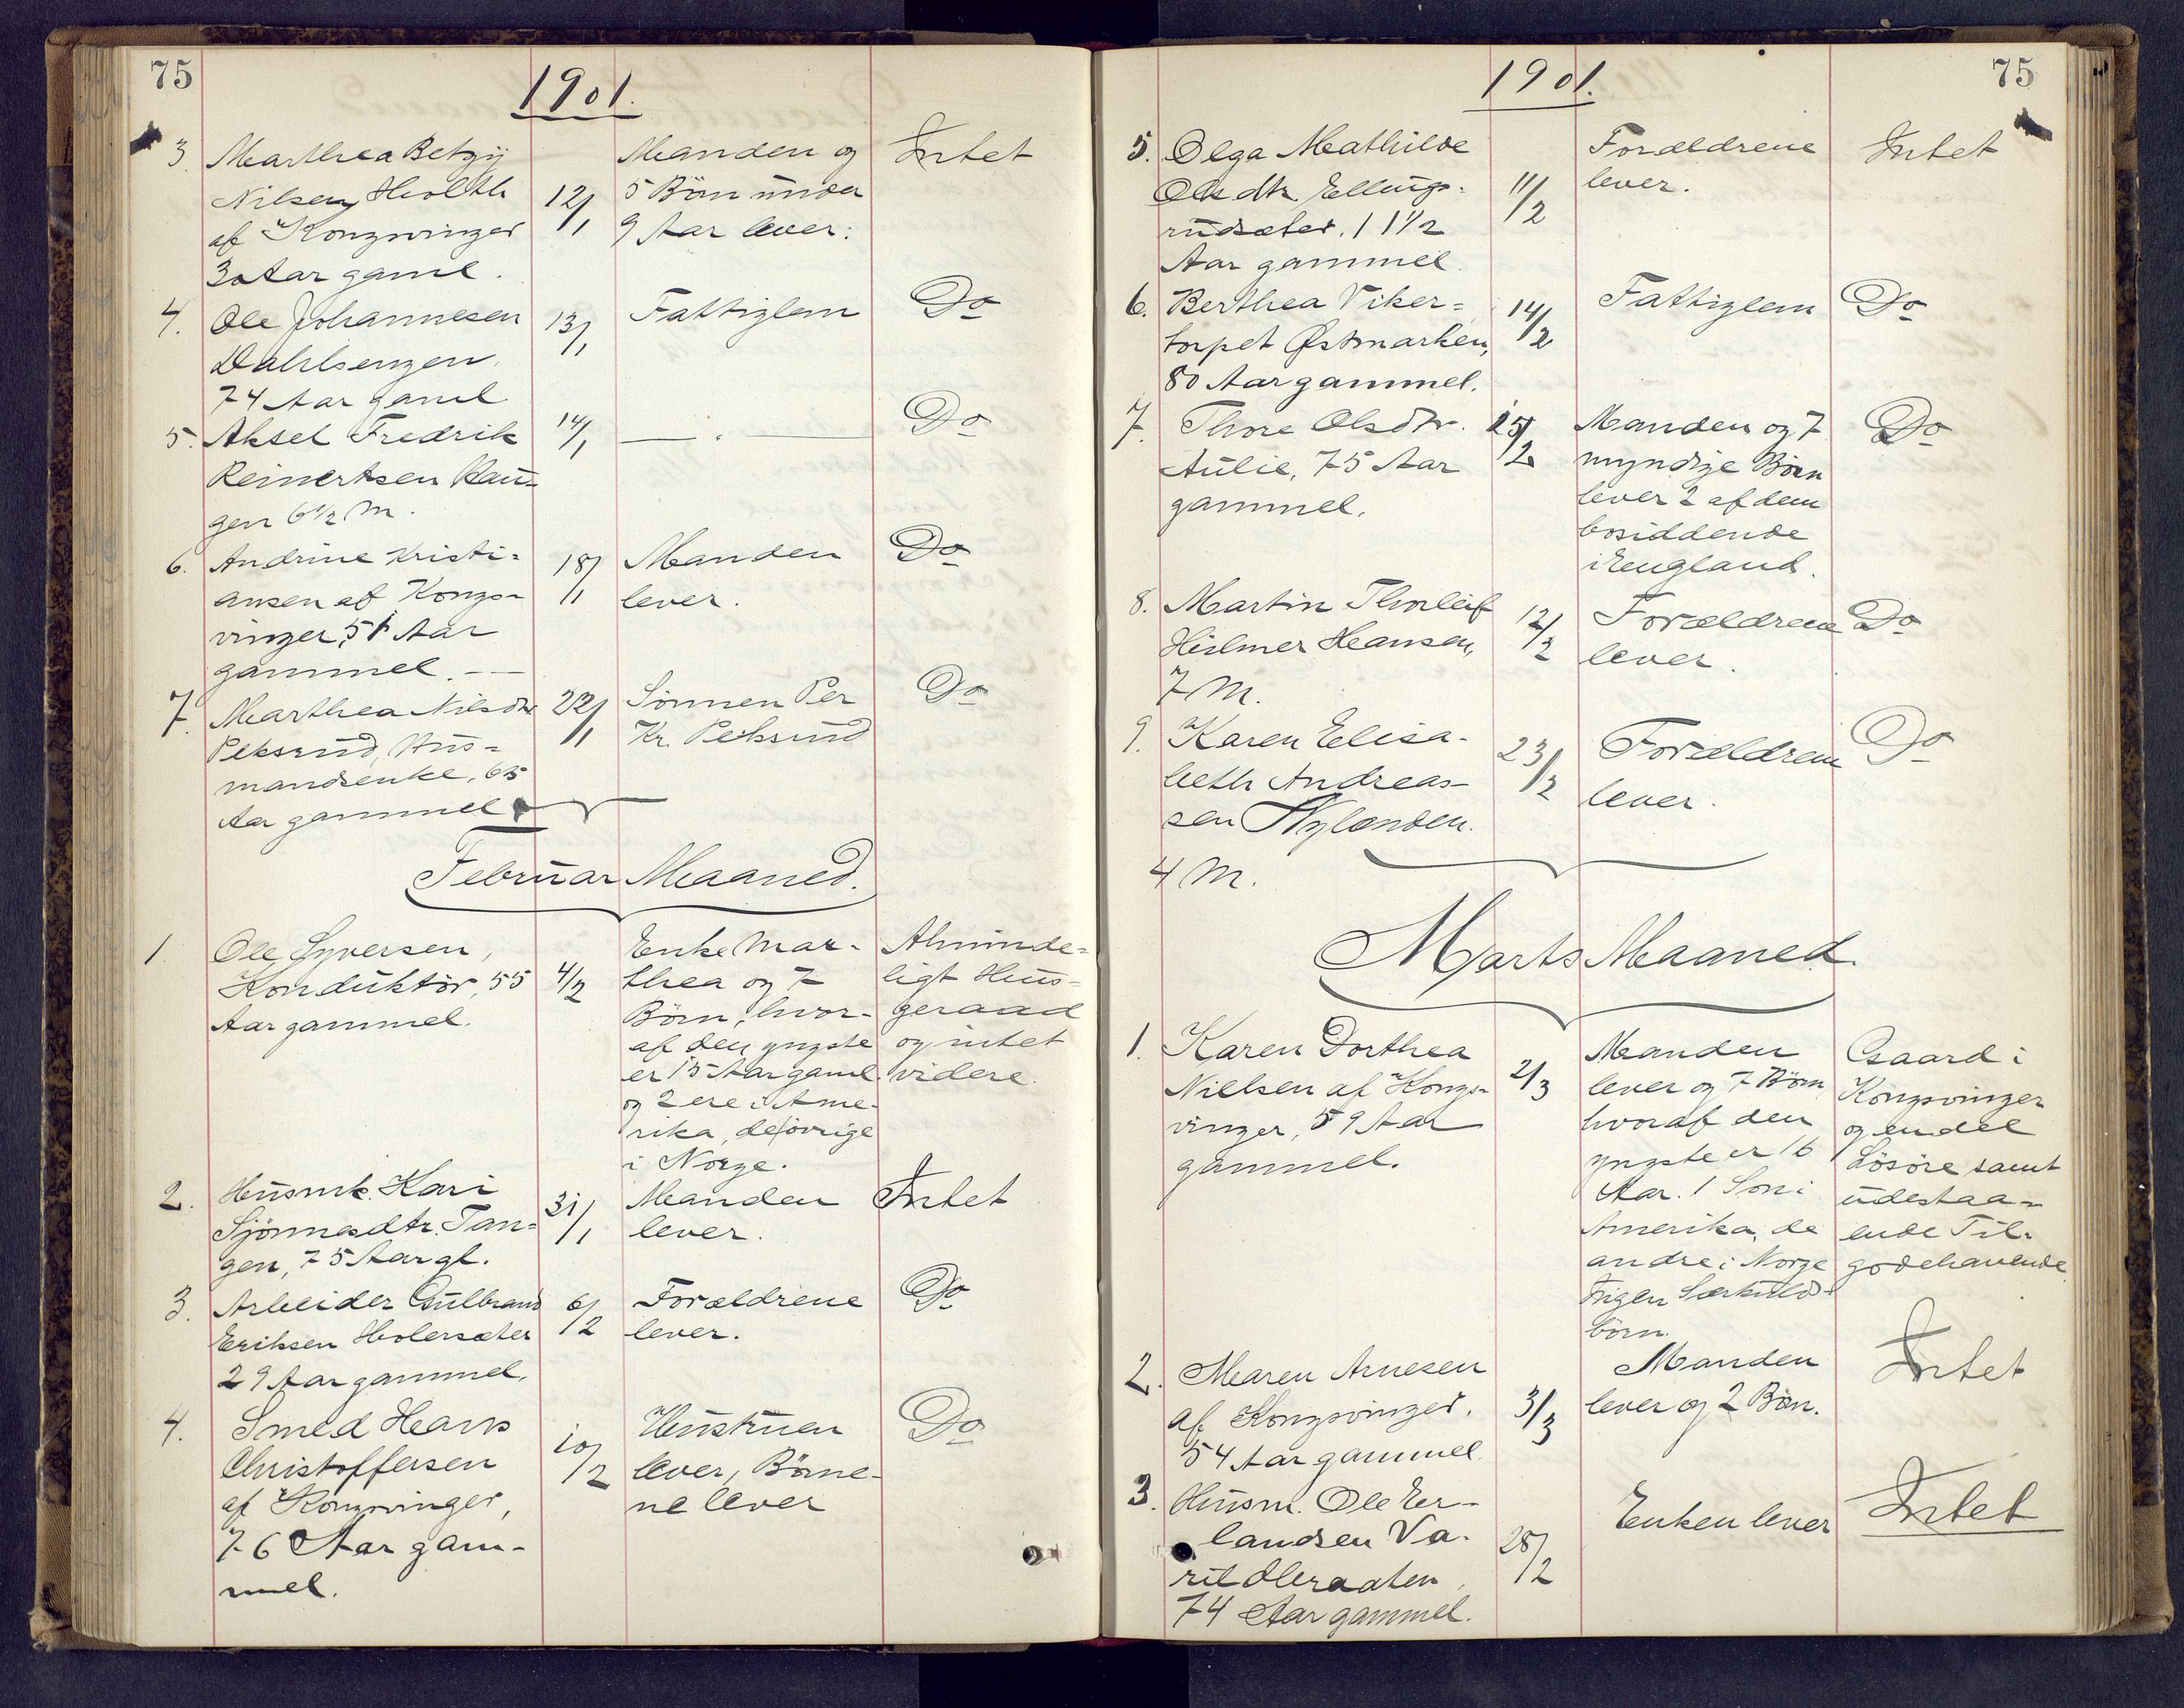 75
1901.
3. Marthea Betzy Manden og Intet
Nilsen, Holth 12/1 5 Börn under
af Kongsvinger 9 Aar lever.
30 Aar gaml.
4. Ole Johannesen 13/1 Fattiglem Do
Dahlsengen,
74 Aar gaml.
5. Aksel Fredrik 14/1 — . — Do
Reinertsen Hau=
gen 6 1/2 M.
6. Andrine Kristi= 18/1 Manden Do
ansen af Kongs= lever.
vinger, 51 Aar
gammel. —
7. Marthea Nilsdtr 22/1 Sönnen Per Do
Peksrud, Hus= Kr. Peksrud
mandsenke, 65
Aar gammel
Februar Maaned.
1. Ole Syversen, Enke Mar- Alminde=
Konduktör, 55 4/2 thea og 7 ligt Hus=
Aar gammel. Börn, hvor- geraad
af den yngste og intet
er 15 Aar gaml. videre.
og 2 ere i Ame-
rika, de övrige
i Norge.
2. Husmk. Kari 31/1 Manden Intet
Sjönnesdtr. Tan= lever.
gen, 75 Aar gl.
3. Arbeider Gulbrand 6/2 Forældrene Do
Eriksen Holersæter lever.
29 Aar gammel,
4. Smed Hans 10/2 Hustruen Do
Christoffersen lever, Börne-
af Kongsvinger, ne lever
76 Aar gam-
mel.
75
1901.
5. Olga Mathilde Forældrene Intet
Olsdtr. Ellings- 11/2 lever.
rudsæter, 11 1/2
Aar gammel.
6. Berthea Viker= 14/2 Fattiglem Do
torpet Østmarken,
80 Aar gammel.
7. Thore Olsdtr. 15/2 Manden og 7 Do
Aulie, 75 Aar myndige Börn
gammel. lever 2 af dem
bosiddende
i England.
8. Martin Thorleif 12/2 Forældrene Do
Hilmer Hansen, lever.
7 M.
9. Karen Elisa- 23/2 Forældrene Do
beth Andreas- lever.
sen Nylænden.
4 M.
Marts Maaned.
1. Karen Dorthea Manden Gaard i
Nielsen af Kongs- 2/3 lever og 7 Börn Kongsvinger
vinger, 59 Aar hvoraf den og endel
gammel. yngste er 16 Lösöre samt
Aar. 1 Sön i udestaa=
Amerika, de ende Til-
andre i Norge godehavende
Ingen Særkulds-
börn.
2. Maren Arnesen Manden Intet
af Kongsvinger, 3/3 lever og 2 Börn.
54 Aar gammel.
3. Husm. Ole Er- Enken lever Intet
landsen Va- 28/2
rildbraaten,
74 Aar gammel.